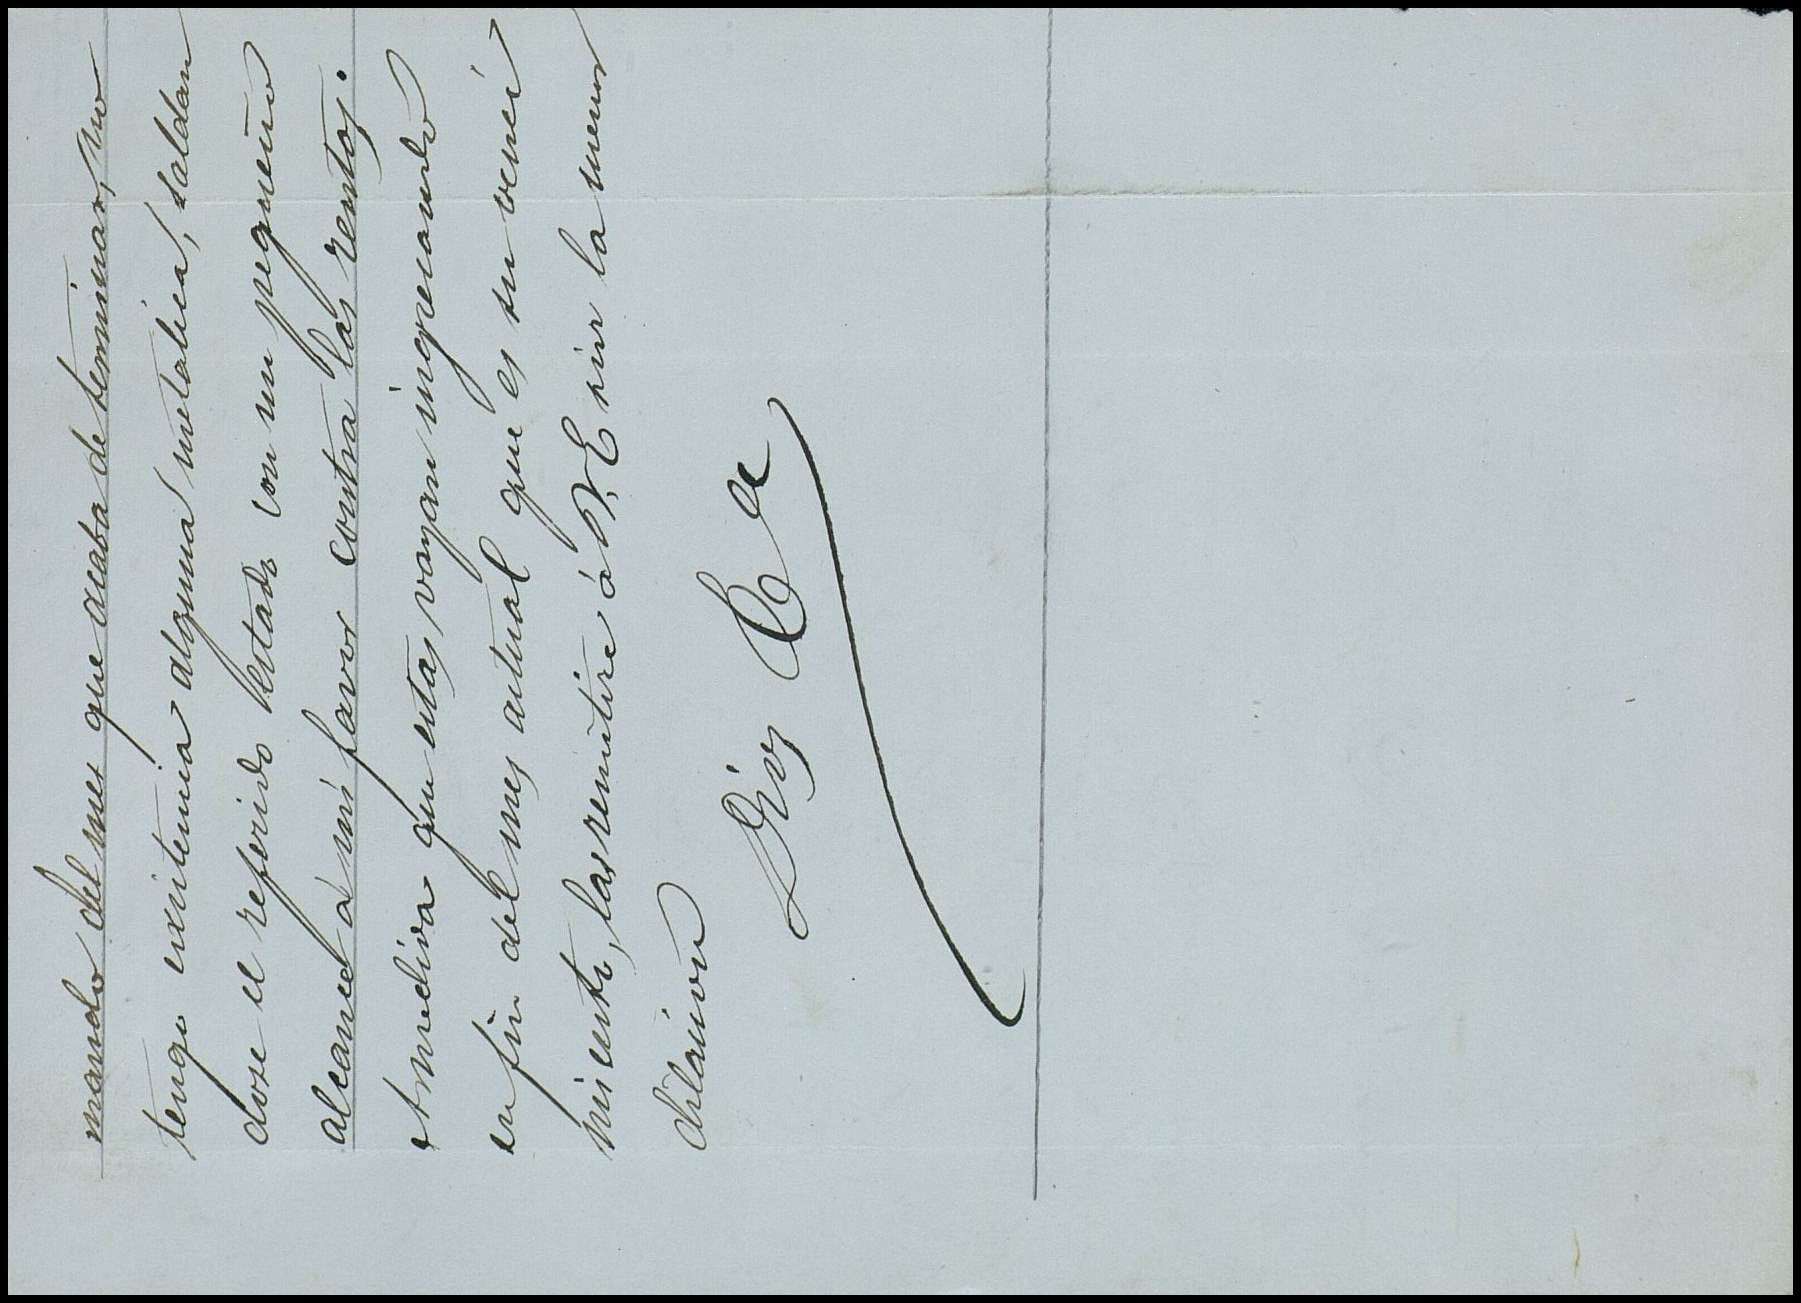 mando del mes que acaba de terminar, no
tengo existencia alguna metalica, saldan
dose el referido Estado con un pequeño
alcance á mi favor contra las rentas.
A medida que estas vayan ingresando
en fin del mes actual que es su venci
miento, las remitiré á V. E. sin la menor
dilacion
Dios &a